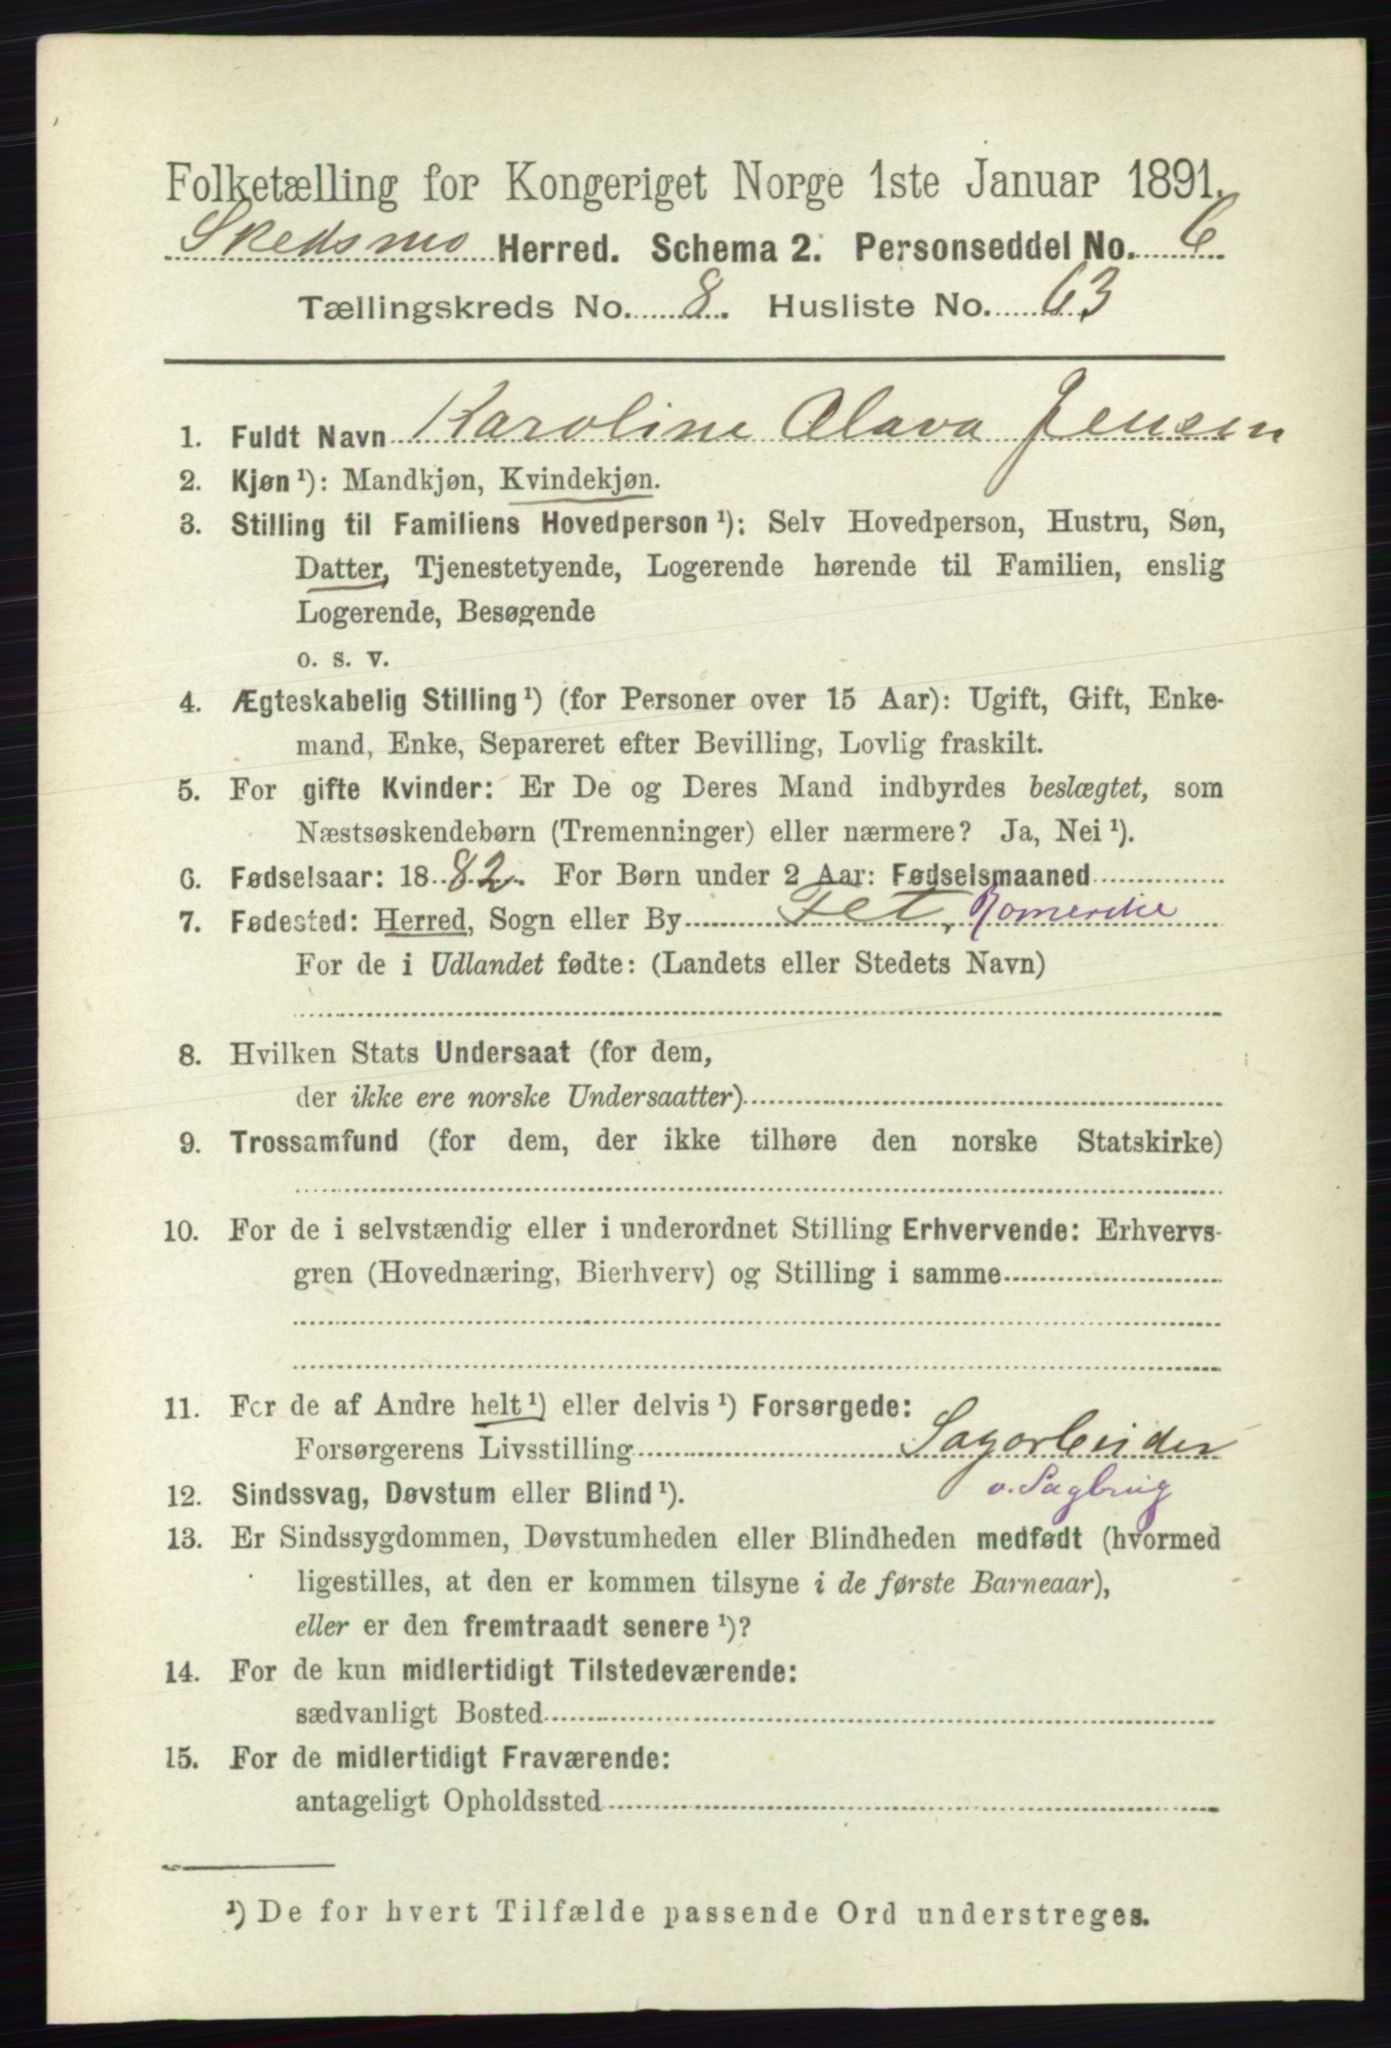 Folketælling for Kongeriget Norge 1ste Januar 1891.
Skedsmo Herred. Schema 2. Personseddel No. 6
Tællingskreds No. 8. Husliste No. 63
1. Fuldt Navn Karoline Olava Jensen
2. Kjøn ¹): Mandkjøn, Kvindekjøn.
3. Stilling til Familiens Hovedperson ¹): Selv Hovedperson, Hustru, Søn,
Datter, Tjenestetyende, Logerende hørende til Familien, enslig
Logerende, Besøgende
o. s. v.
4. Ægteskabelig Stilling ¹) (for Personer over 15 Aar): Ugift, Gift, Enke-
mand, Enke, Separeret efter Bevilling, Lovlig fraskilt.
5. For gifte Kvinder: Er De og Deres Mand indbyrdes beslægtet, som
Næstsøskendebørn (Tremenninger) eller nærmere? Ja, Nei ¹).
6. Fødselsaar: 1882. For Børn under 2 Aar: Fødselsmaaned
7. Fødested: Herred, Sogn eller By Fet, Romerike
For de i Udlandet fødte: (Landets eller Stedets Navn)
8. Hvilken Stats Undersaat (for dem,
der ikke ere norske Undersaatter)
9. Trossamfund (for dem, der ikke tilhøre den norske Statskirke)
10. For de i selvstændig eller i underordnet Stilling Erhvervende: Erhvervs-
gren (Hovednæring, Bierhverv) og Stilling i samme
11. For de af Andre helt ¹) eller delvis ¹) Forsørgede:
Forsørgerens Livsstilling Sagarbeider
v. Sagbrug
12. Sindssvag, Døvstum eller Blind ¹).
13. Er Sindssygdommen, Døvstumheden eller Blindheden medfødt (hvormed
ligestilles, at den er kommen tilsyne i de første Barneaar),
eller er den fremtraadt senere ¹)?
14. For de kun midlertidigt Tilstedeværende:
sædvanligt Bosted
15. For de midlertidigt Fraværende:
antageligt Opholdssted
¹) De for hvert Tilfælde passende Ord understreges.